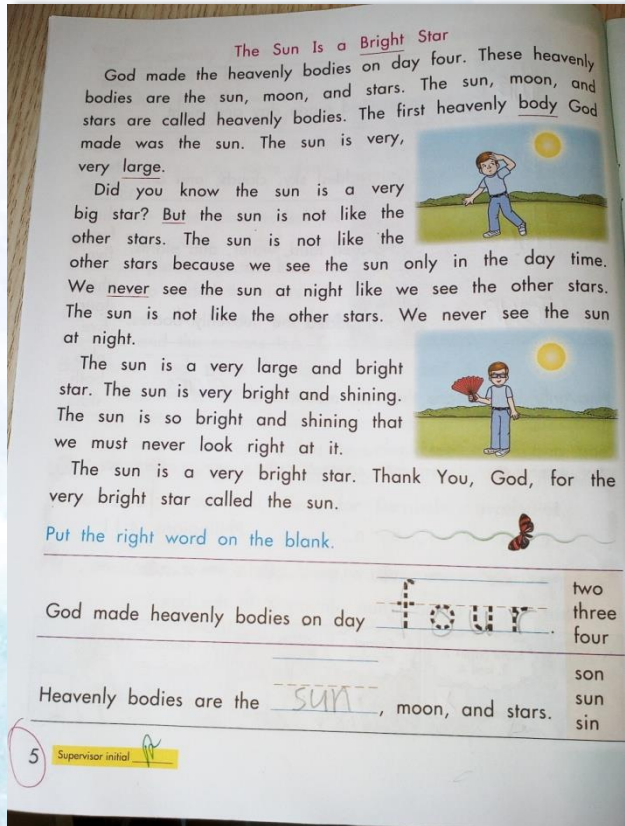 The Sun Is a Bright Star
God made the heavenly bodies on day four. These heavenly
bodies are the sun, moon, and stars. The sun, moon, and
stars are called heavenly bodies. The first heavenly body God
made was the sun. The sun is very,
very large.
Did you know the sun is a very
big star? But the sun is not like the
other stars. The sun is not like the
other stars because we see the sun only in the day time.
We never see the sun at night like we see the other stars.
The sun is not like the other stars. We never see the sun
at night.
The sun is a very large and bright
star. The sun is very bright and shining.
The sun is so bright and shining that
we must never look right at it.
The sun is a very bright star. Thank You, God, for the
very bright star called the sun.
Put the right word on the blank.
God made heavenly bodies on day four.
two
three
four
Heavenly bodies are the sun, moon, and stars.
son
sun
sin
5 Supervisor initial